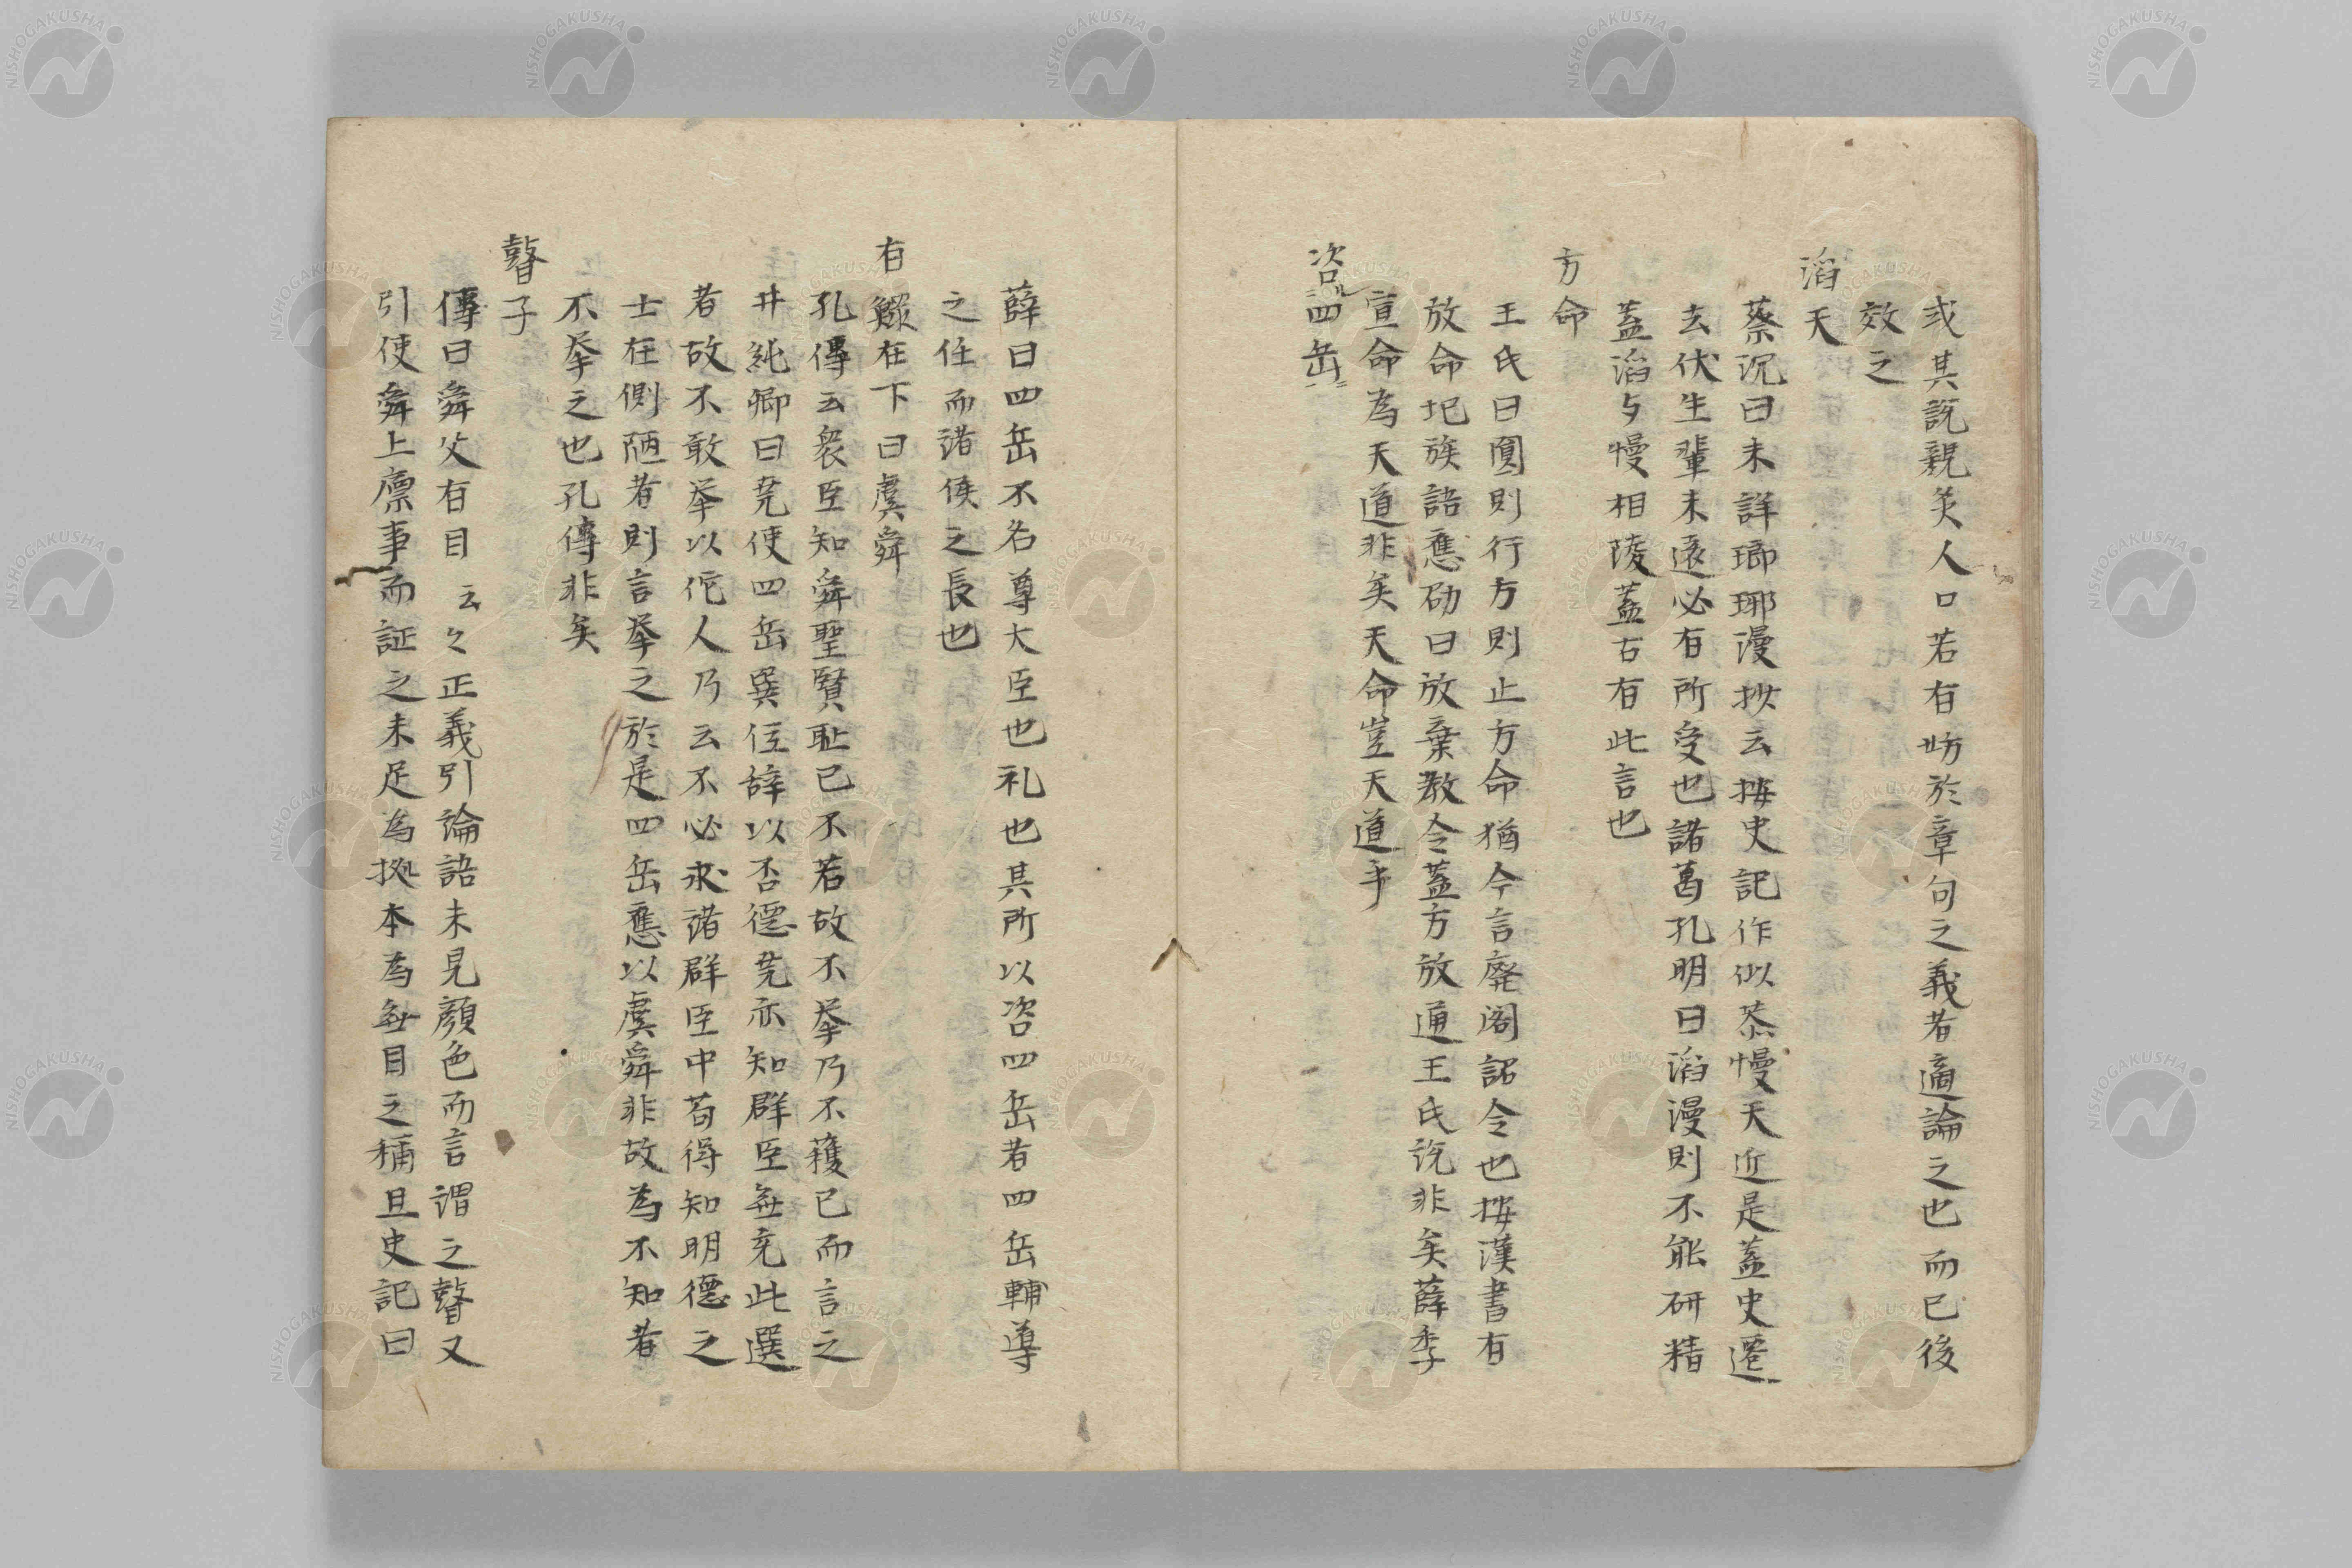 或其説親炙人口若有妨於章句之義者適論之也而已後
效之
滔天
蔡沉曰未詳瑯琊漫抄云按史記作似恭慢天近是蓋史遷
去伏生輩未遠必有所受也諸葛孔明曰滔漫則不能研精
蓋滔与慢相陵蓋古有此言也
方命
王氏曰圓則行方則止方命猶今言廢閣詔令也按漢書有
放命圯族語應劭曰放棄教令蓋方放通王氏説非矣薛季
宣命為天道非矣天命豈天道乎
咨四岳
薛曰四岳不名尊大臣也礼也其所以咨四岳者四岳輔導
之任而諸侯之長也
有鰥在下曰虞舜
孔傳云衆臣知舜聖賢耻已不若故不挙乃不獲已而言之
井純卿曰尭使四岳巽位辞以否徳尭亦知群臣無充此選
者故不敢挙以佗人乃云不必求諸群臣中苟得知明德之
士在側陋者則言挙之於是四岳應以虞舜非故為不知者
不挙之也孔傳非矣
瞽子
傳曰舜父有目云々正義引論語未見顔色而言謂之瞽又
引使舜上廪事而証之未足為拠本為無目之稱且史記曰
NISHOGAKUSHA